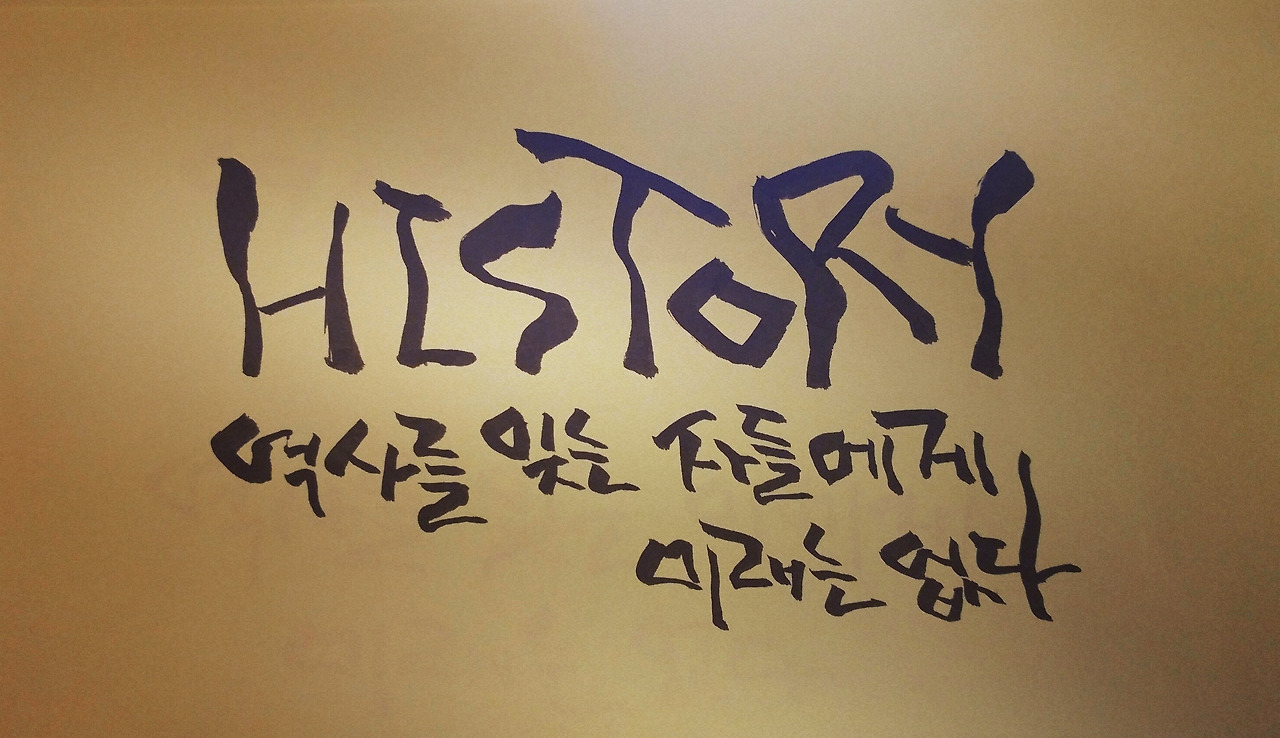 HISTORY
역사를 잊는 자들에게
미래는 없다